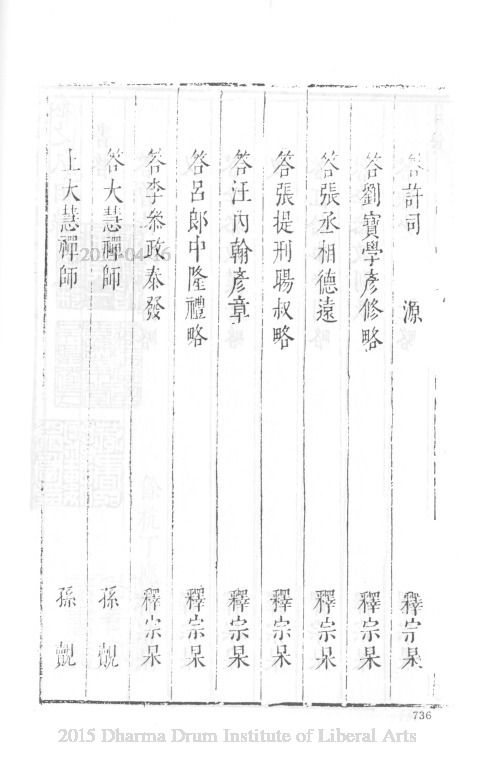 答許司　源　釋宗杲
答劉寶學彥修略　釋宗杲
答張丞相德遠　釋宗杲
答張提刑暘叔略　釋宗杲
答汪內翰彥章　釋宗杲
答呂郎中隆禮略　釋宗杲
答李叅政泰發　釋宗杲
答大慧禪師　孫覿
上大慧禪師　孫覿
736
2015 Dharma Drum Institute of Liberal Arts